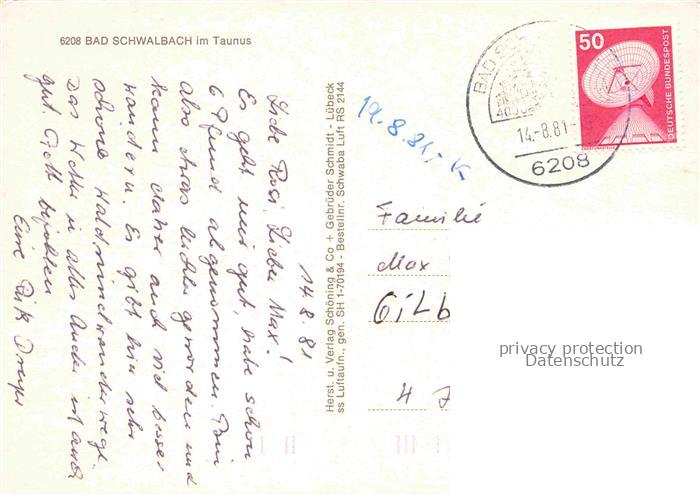 6208 BAD SCHWALBACH im Taunus
14.8.81
Liebe Rosi, Lieber Max!
Es geht mir gut, habe schon
6 Pfund abgenommen. Bin
also etwas leichter geworden und
kann daher auch viel besser
wandern. Es gibt hier sehr
schöne Waldrundwanderwege.
Das Wetter und alles Andere ist auch
gut. Herzl.
Eure
Herst. u. Verlag Schöning & Co + Gebrüder Schmidt - Lübeck
ss Luftaufn., gen. SH 1-70194 - Bestellnr. Schwaba Luft RS 2144
19.8.81, K
BAD SC
14.-8.81
6208
50
DEUTSCHE BUNDESPOST
Familie
Max
Gilb
4
privacy protection
Datenschutz